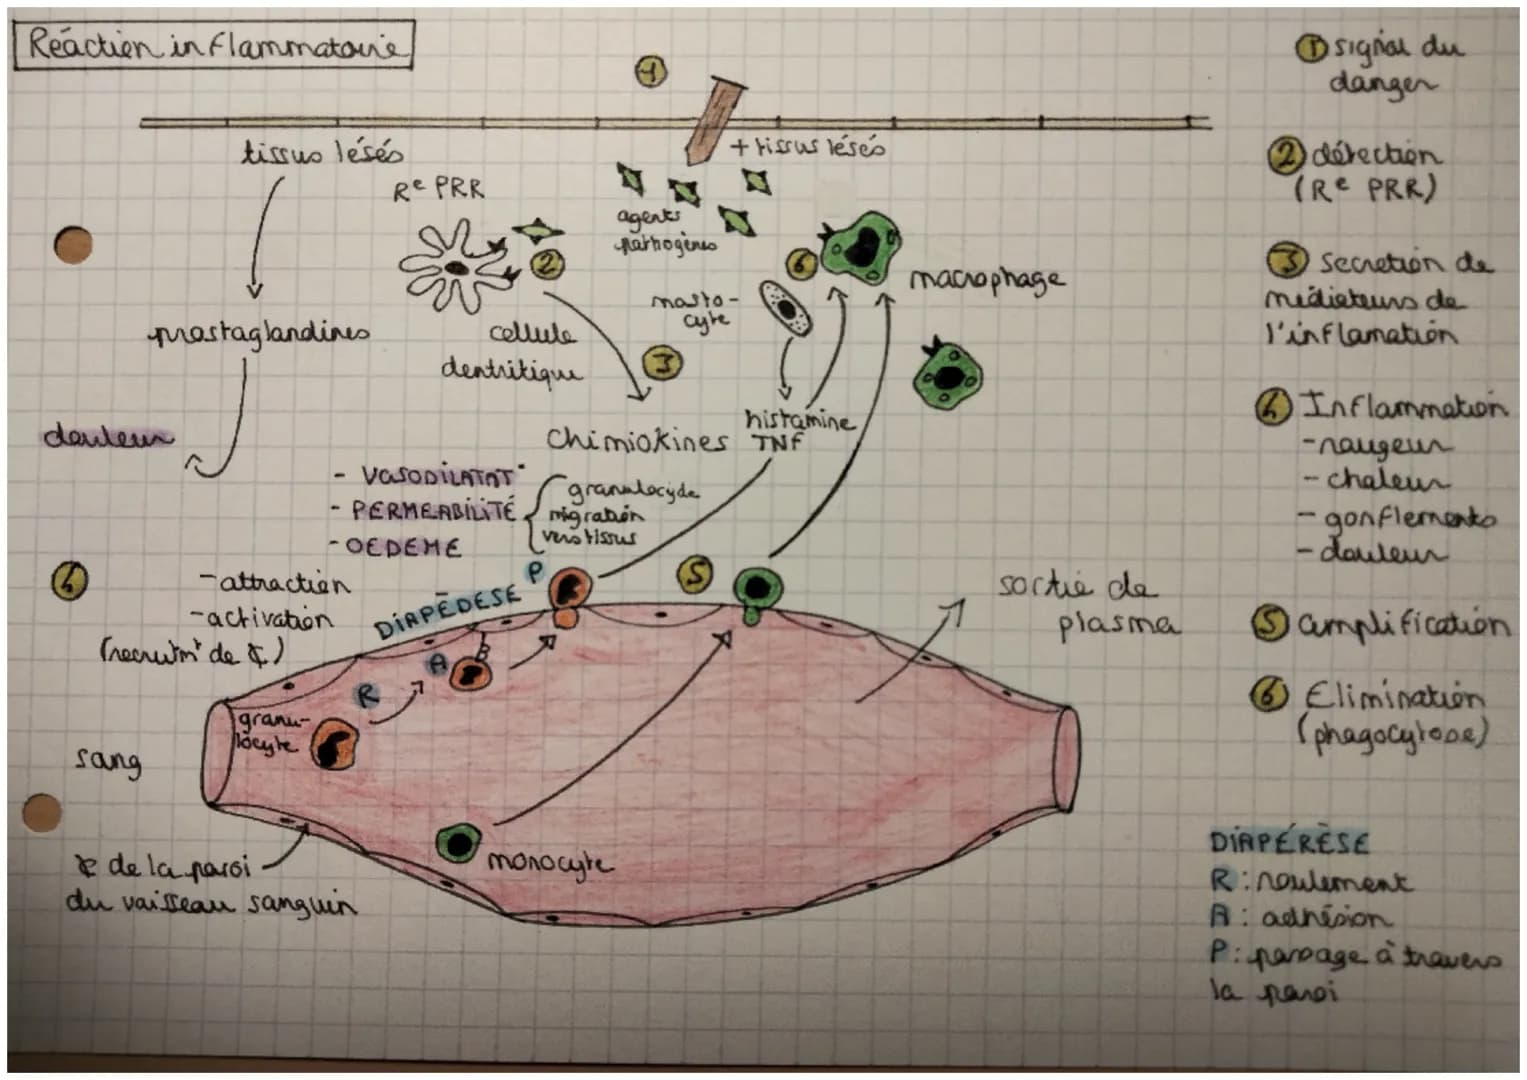 Réaction inflammatoire
1
tissus lésés
+ tissus lésés
Re PRR
agents
pathogènes
2
6
macrophage
masto-
cyte
prostaglandines
cellule
dentritique
3
douleur
chimiokines
histamine
TNF
- VASODILATAT°
- PERMEABILITÉ
- OEDEME
granulocyde
migration
vers tissus
4
- attraction
- activation
(recrutmt de ₵)
DIAPÉDESE
P
5
sortie de
plasma
R
A
B
granu-
locyte
sang
monocyte
₵ de la paroi
du vaisseau sanguin
1 signal du
danger
2 détection
(Re PRR)
3 secretion de
médiateurs de
l'inflamation
4 Inflammation
- rougeur
- chaleur
- gonflements
- douleur
5 amplification
6 Elimination
(phagocytose)
DIAPÉRÈSE
R : roulement
A : adhésion
P : passage à travers
la paroi